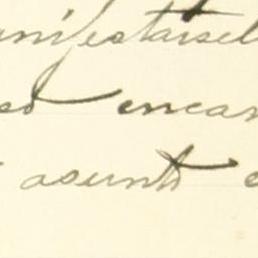 manifestarsel
ed encar
asunto